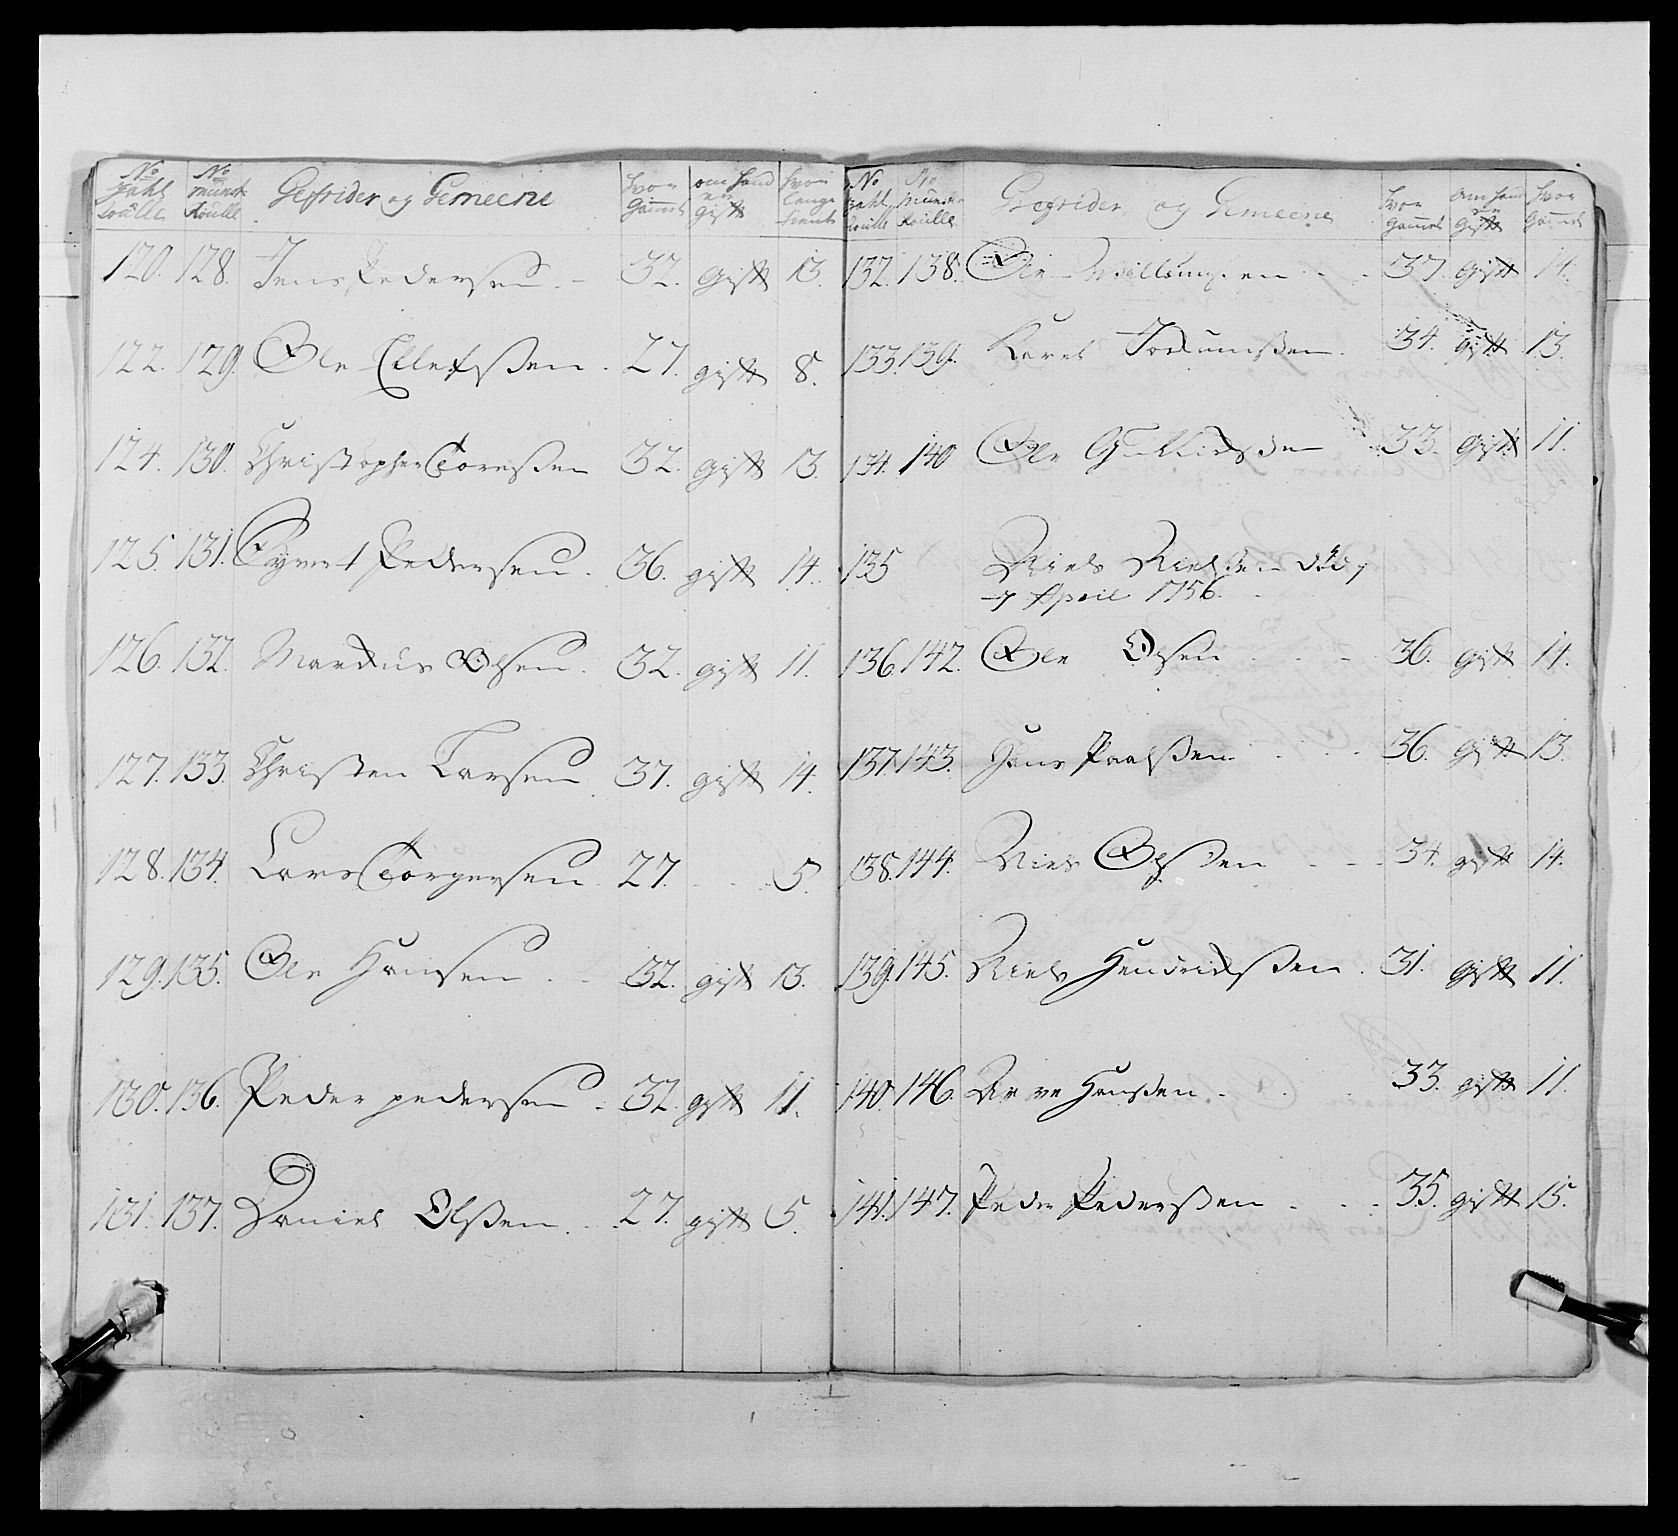 No Zahl Roulle No Munst. Roulle Gefrider og Gemeene hvor Gammel om hand er gift hvor lange tient
120. 128. Jens Pedersen. 32. gift 13.
122. 129. Ole Ellefssen. 27. gift 8.
124. 130. Christopher Toressen 32. gift 13.
125. 131. Pedersen. 36. gift 14.
126. 132. Markus Olsen. 32. gift 11.
127. 133. Christen Larsen 37. gift 14.
128. 134. Lars Torgersen. 27. 5.
129. 135. Ole Hansen. 32. gift 13.
130. 136. Peder pedersen. 32. gift 11.
131. 137. Daniel Olssen. 27. gift 5.
No Zahl Roulle No Munst. Roulle Gefrider og Gemeene hvor Gammel om hand er Gift hvor Gammel
132. 138. Ole 37. gift 11.
133. 139. 34. gift 13.
134. 140 Ole 33. gift 11.
135 Niels Nielssen død,
7 April 1756.
136. 142. Ole Olsen 36. gift 14.
137. 143. Hans Paalssen 36. gift 13.
138. 144. Niels Olssen 34. gift 14.
139. 145. Niels Hendrickssen. 31. gift 11.
140. 146. Hanssen. 33. gift 11.
141. 147. Peder Pederssen 35. gift 15.